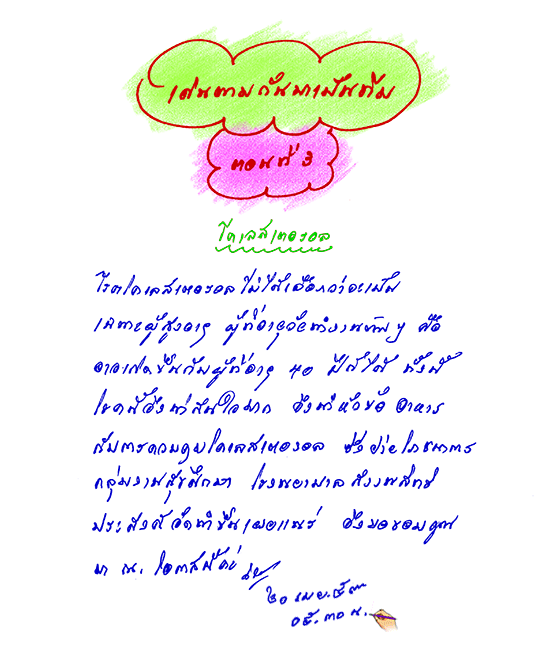 เดินตามกันมาเป็นทีม
ตอนที่ 3
โคเลสเตอรอล
โรคโคเลสเตอรอล ไม่ได้เลือกว่าจะเป็น
เฉพาะผู้สูงอายุ ผู้ที่อายุวัยทำงานทั่วๆ คือ
อาจเกิดขึ้นกับผู้ที่อายุ ๒๐ ปีก็ได้ ทั้งนี้
โรคนี้จึงน่าสนใจมาก จึงนำหัวข้อ อาหาร
กับการควบคุมโคเลสเตอรอล ซึ่งฝ่ายโภชนาการ
กลุ่มงานสุขศึกษา โรงพยาบาลสรรพสิทธิ
ประสงค์จัดทำขึ้นเผยแพร่ จึงขอขอบคุณ
มา ณ. โอกาสนี้ค่ะ
๒๐ เมย. ๕๓
๐๕.๓๐ น.